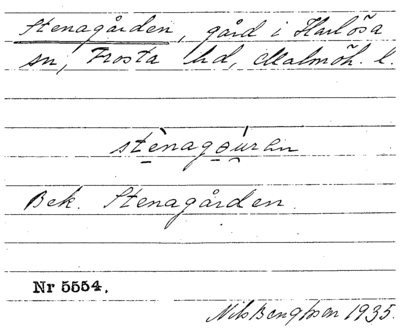 Stenagården, gård i Harlösa
sn, Frosta hd, Malmöh. l.
Bek. Stenagården.
Nr 5554.
Nils Bengtsson 1935.